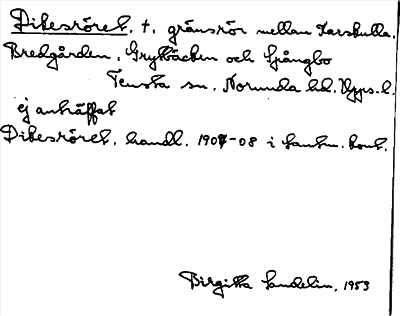 Dikesröret, t. gränsrör mellan Karskulla,
Bredgården, Grytbäcken och Spångbo
Tensta sn. Norunda hd. Upps. l.
ej anträffat
Dikesröret. handl. 1907-08 i lantm. kont.
Birgitta Sandelin, 1953